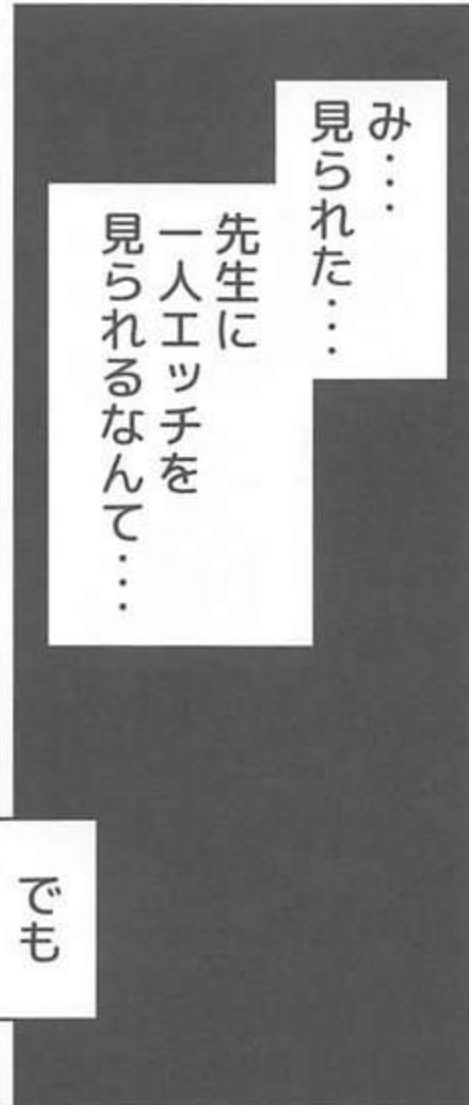 み…
見られた…
先生に
一人エッチを
見られるなんて…
でも